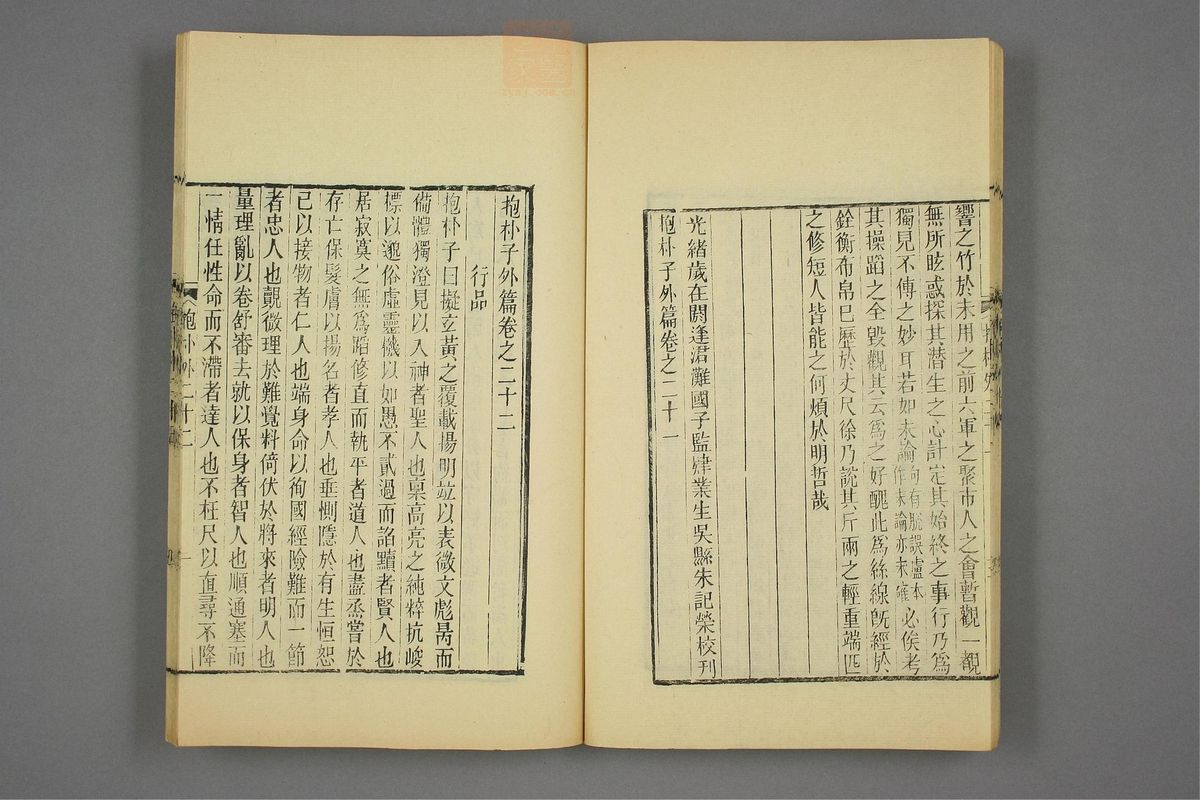 響之竹於未用之前六軍之聚市人之會暫觀一覩
無所眩惑探其潛生之心計定其始終之事行乃爲
獨見不傳之妙耳若如未論句有脫誤盧本作末論亦未確必俟考
其操蹈之全毀觀其云爲之好醜此爲絲線旣經於
銓衡布帛巳歷於丈尺徐乃說其斤兩之輕重端匹
之修短人皆能之何煩於明哲哉
光緒歲在閼逢涒灘國子監肄業生吳縣朱記榮校刊
抱朴子外篇卷之二十一
抱朴子外篇卷之二十二
行品
抱朴子曰擬立黃之覆載揚明竝以表微文彪昺而
備體獨澄見以入神者聖人也稟高亮之純粹抗峻
標以邈俗虛靈機以如愚不貳過而諂黷者賢人也
居寂寞之無爲蹈修直而執平者道人也盡烝嘗於
存亡保髮膚以揚名者孝人也垂惻隱於有生恒恕
己以接物者仁人也端身命以徇國經險難而一節
者忠人也覿微理於難覺料倚伏於將來者明人也
量理亂以卷舒審去就以保身者智人也順通塞而
一情任性命而不滯者達人也不枉尺以直尋不降
抱朴外二十二